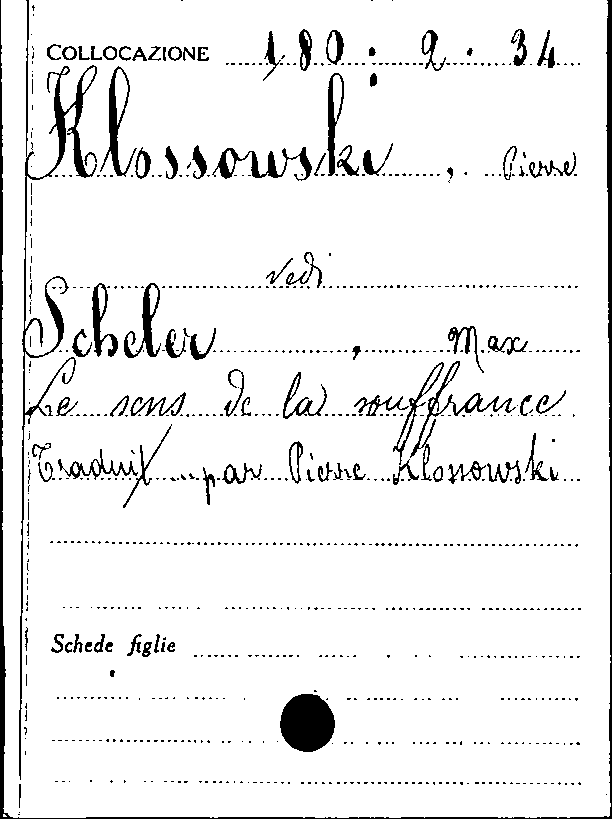 COLLOCAZIONE 180.2.34
Klossowski, Pierre
vedi
Scheler, Max
Le sens de la souffrance
Traduit par Pierre Klossowski
Schede figlie